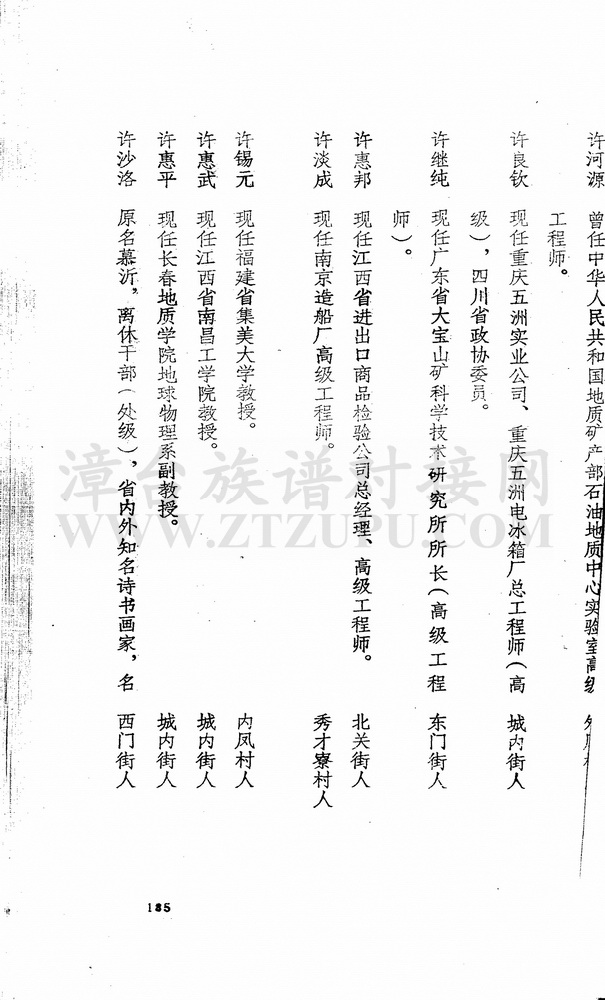 许河源 曾任中华人民共和国地质矿产部石油地质中心实验室高级
工程师。
许良钦 现任重庆五洲实业公司、重庆五洲电冰箱厂总工程师(高 城内街人
级),四川省政协委员。
许继纯 现任广东省大宝山矿科学技术研究所所长(高级工程 东门街人
师)。
许惠邦 现任江西省进出口商品检验公司总经理、高级工程师。 北关街人
许淡成 现任南京造船厂高级工程师。 秀才寮村人
许锡元 现任福建省集美大学教授。 内凤村人
许惠武 现任江西省南昌工学院教授。 城内街人
许惠平 现任长春地质学院地球物理系副教授。 城内街人
许沙洛 原名慕沂,离休干部(处级),省内外知名诗书画家,名 西门街人
185
漳台族谱对接网
WWW.ZTZUPU.COM